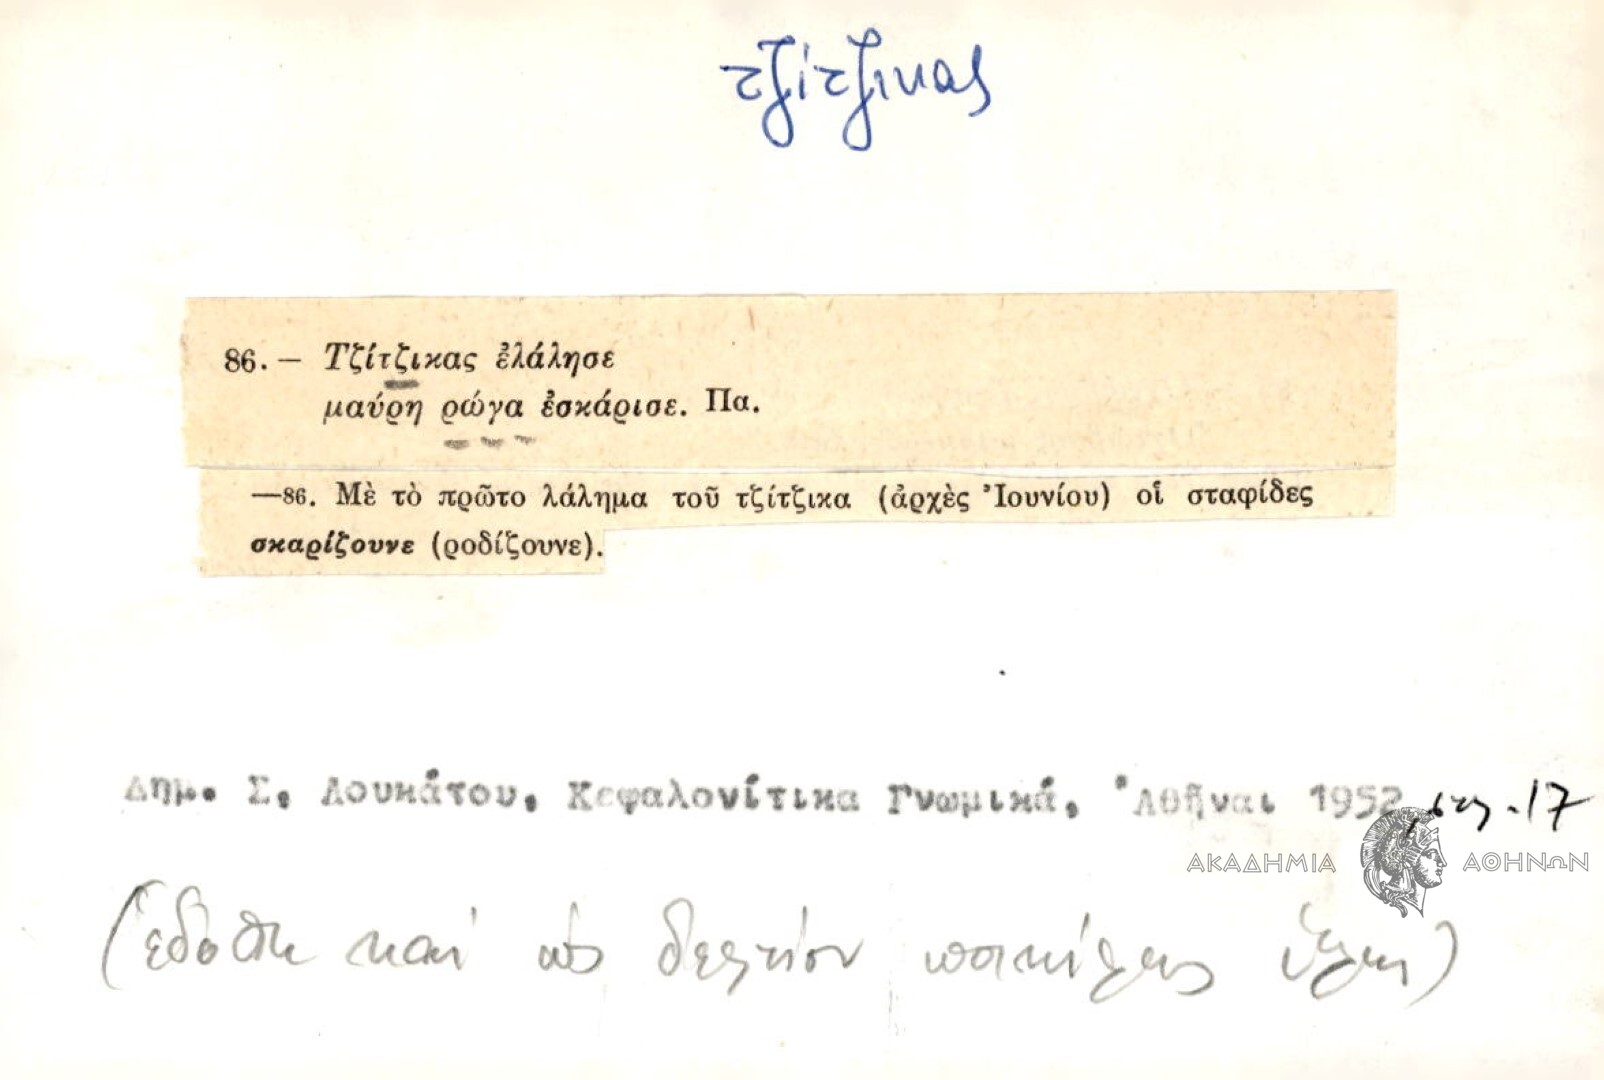 τζίτζικας
86. — Τζίτζικας ἐλάλησε
μαύρη ρώγα ἐσκάρισε. Πα.
—86. Μὲ τὸ πρῶτο λάλημα τοῦ τζίτζικα (ἀρχὲς Ἰουνίου) οἱ σταφίδες
σκαρίζουνε (ροδίζουνε).
Δημ. Σ. Λουκάτου, Κεφαλονίτικα Γνωμικά, Ἀθῆναι 1952, σελ. 17
ΑΚΑΔΗΜΙΑ ΑΘΗΝΩΝ
(ἐδόθη καὶ ὡς δελτίον ποικίλης ὕλης)